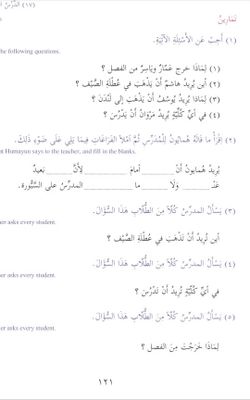 (١٧) الدَّرْسُ
تَمَارِينُ
(١) أَجِبْ عَنِ الأَسْئِلَةِ الآتِيَةِ.
he following questions.
(١) لِمَاذَا خَرَجَ عَمَّارٌ وَيَاسِرٌ مِنَ الفَصْلِ ؟
(٢) أَيْنَ يُرِيدُ هَاشِمٌ أَنْ يَذْهَبَ فِي عُطْلَةِ الصَّيْفِ ؟
(٣) لِمَاذَا يُرِيدُ يُوسُفُ أَنْ يَذْهَبَ إِلَى لَنْدَنَ ؟
(٤) فِي أَيِّ كُلِّيَّةٍ يُرِيدُ مَرْوَانُ أَنْ يَدْرُسَ ؟
(٢) اِقْرَأْ مَا قَالَهُ هُمَايُونُ لِلْمُدَرِّسِ ثُمَّ امْلَأِ الفَرَاغَاتِ فِيمَا يَلِي عَلَى ضَوْءِ ذَلِكَ.
t Humayun says to the teacher, and fill in the blanks.
يُرِيدُ هُمَايُونُ أَنْ ______ أَمَامَ ______ لِأَنَّ ______ بَعِيدٌ
عَنْـ ______ وَلَا ______ مَا ______ المدرِّسُ عَلَى السَّبُّورَةِ.
(٣) يَسْأَلُ المدرِّسُ كُلًّا مِنَ الطُّلَّابِ هَذَا السُّؤَالَ.
er asks every student.
أَيْنَ تُرِيدُ أَنْ تَذْهَبَ فِي عُطْلَةِ الصَّيْفِ ؟
(٤) يَسْأَلُ المدرِّسُ كُلًّا مِنَ الطُّلَّابِ هَذَا السُّؤَالَ.
er asks every student.
فِي أَيِّ كُلِّيَّةٍ تُرِيدُ أَنْ تَدْرُسَ ؟
(٥) يَسْأَلُ المدرِّسُ كُلًّا مِنَ الطُّلَّابِ هَذَا السُّؤَالَ.
er asks every student.
لِمَاذَا خَرَجْتَ مِنَ الفصل ؟
١٢١